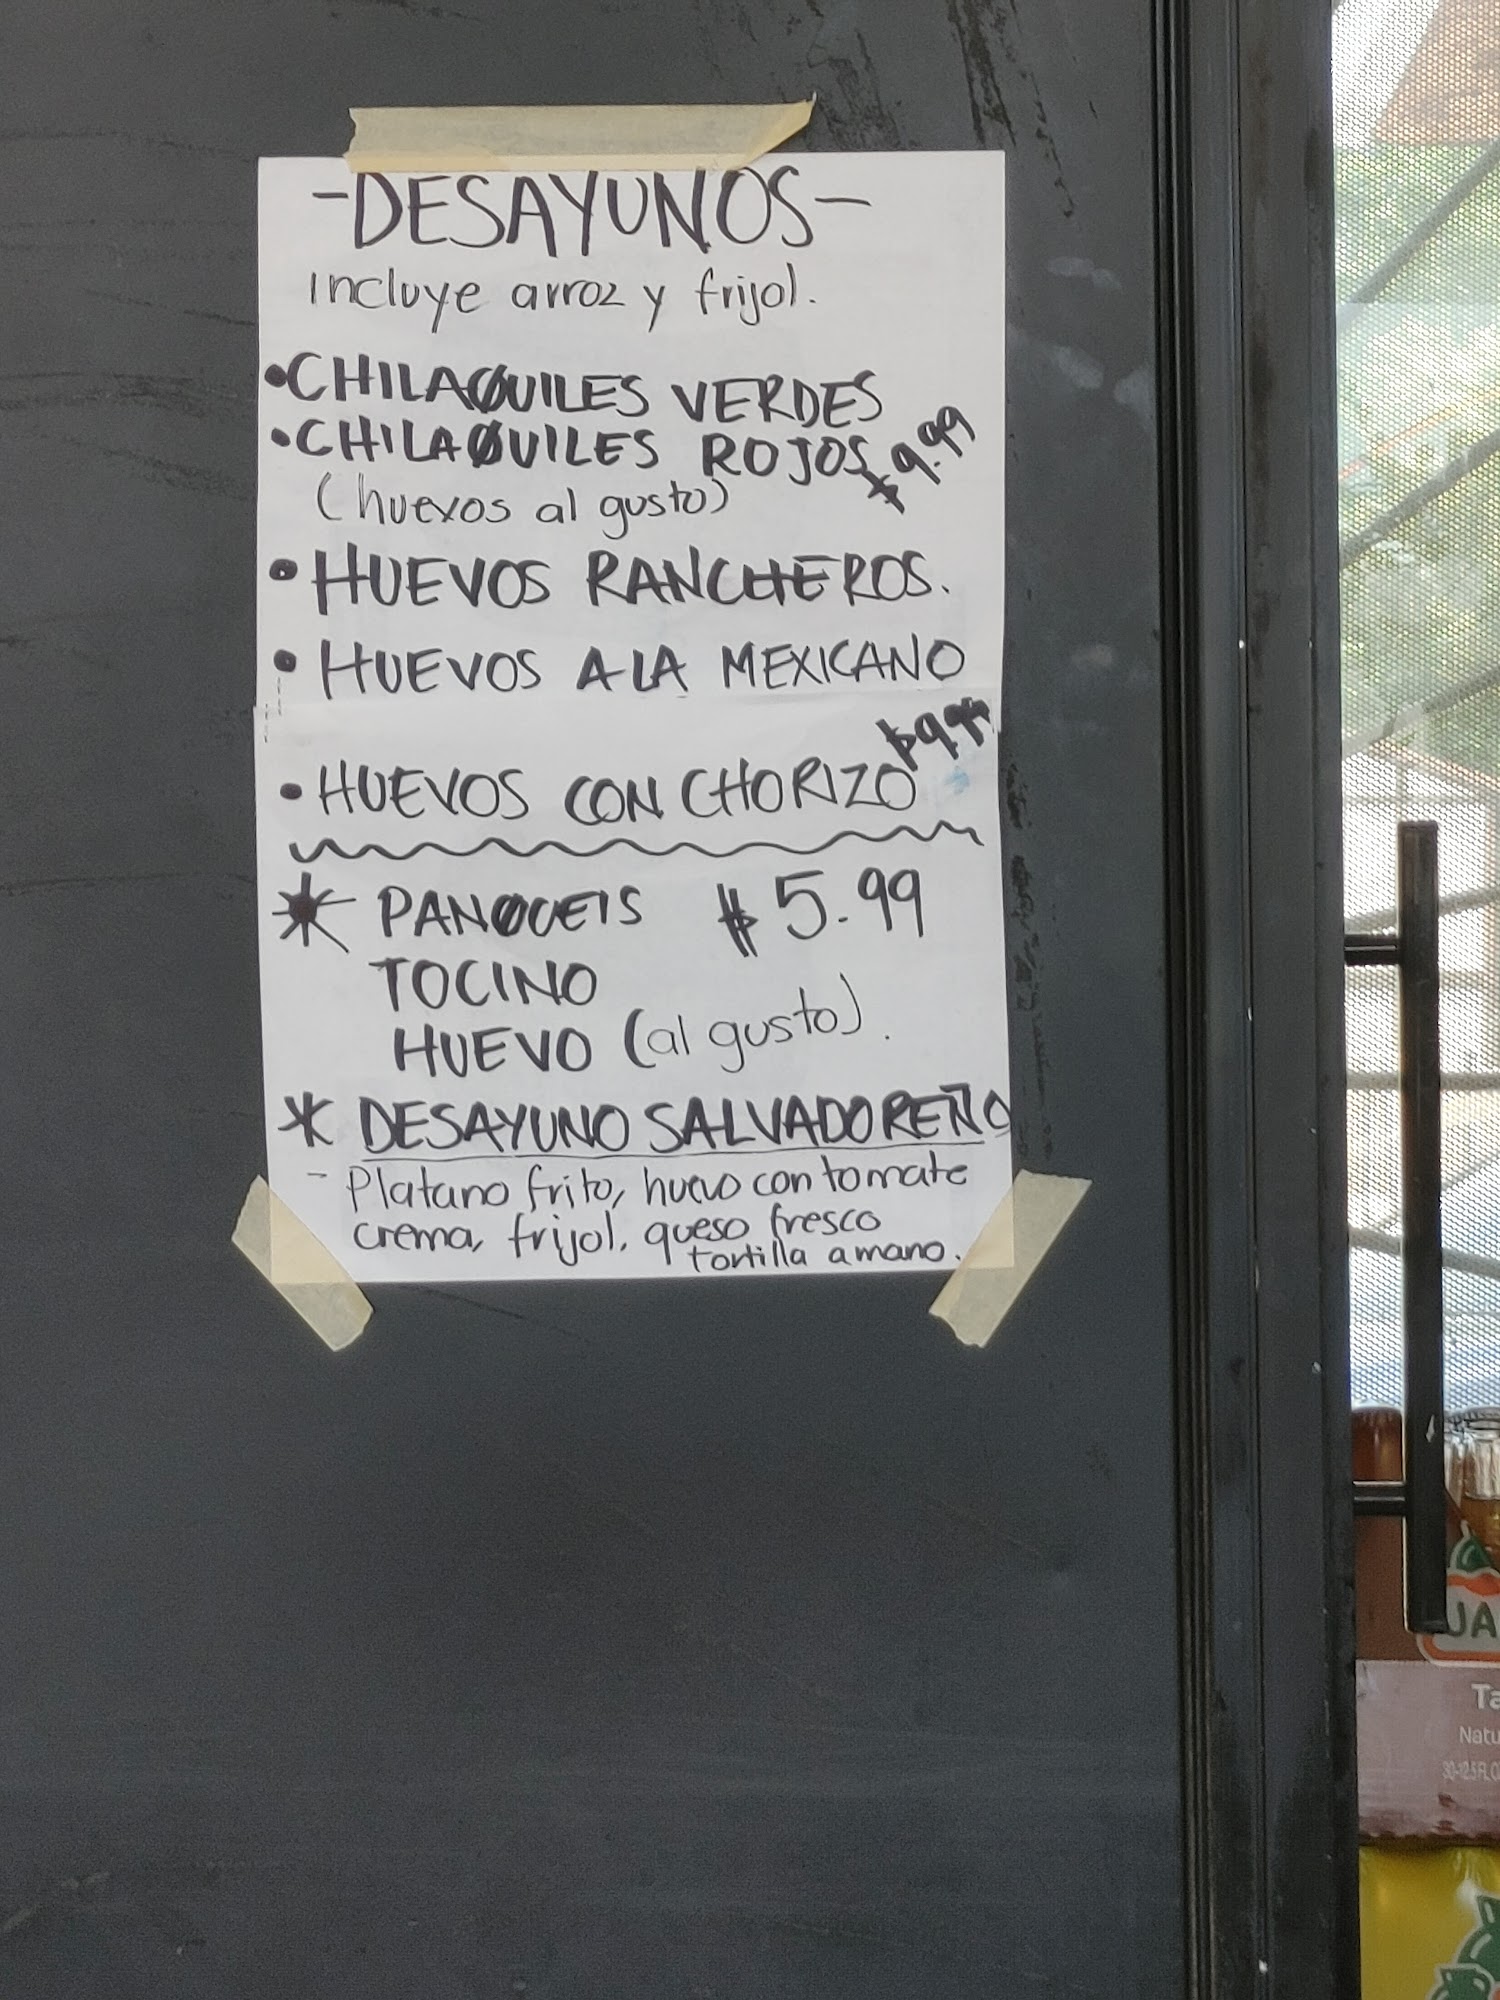 -DESAYUNOS-
incluye arroz y frijol.
•CHILAQUILES VERDES
•CHILAQUILES ROJOS $9.99
(huevos al gusto)
• HUEVOS RANCHEROS.
• HUEVOS A LA MEXICANO
$9.99
• HUEVOS CON CHORIZO
* PANQUEIS $5.99
TOCINO
HUEVO (al gusto).
* DESAYUNO SALVADOREÑO
- Platano frito, huevo con tomate
crema, frijol, queso fresco
tortilla a mano.
JA
Ta
Natu